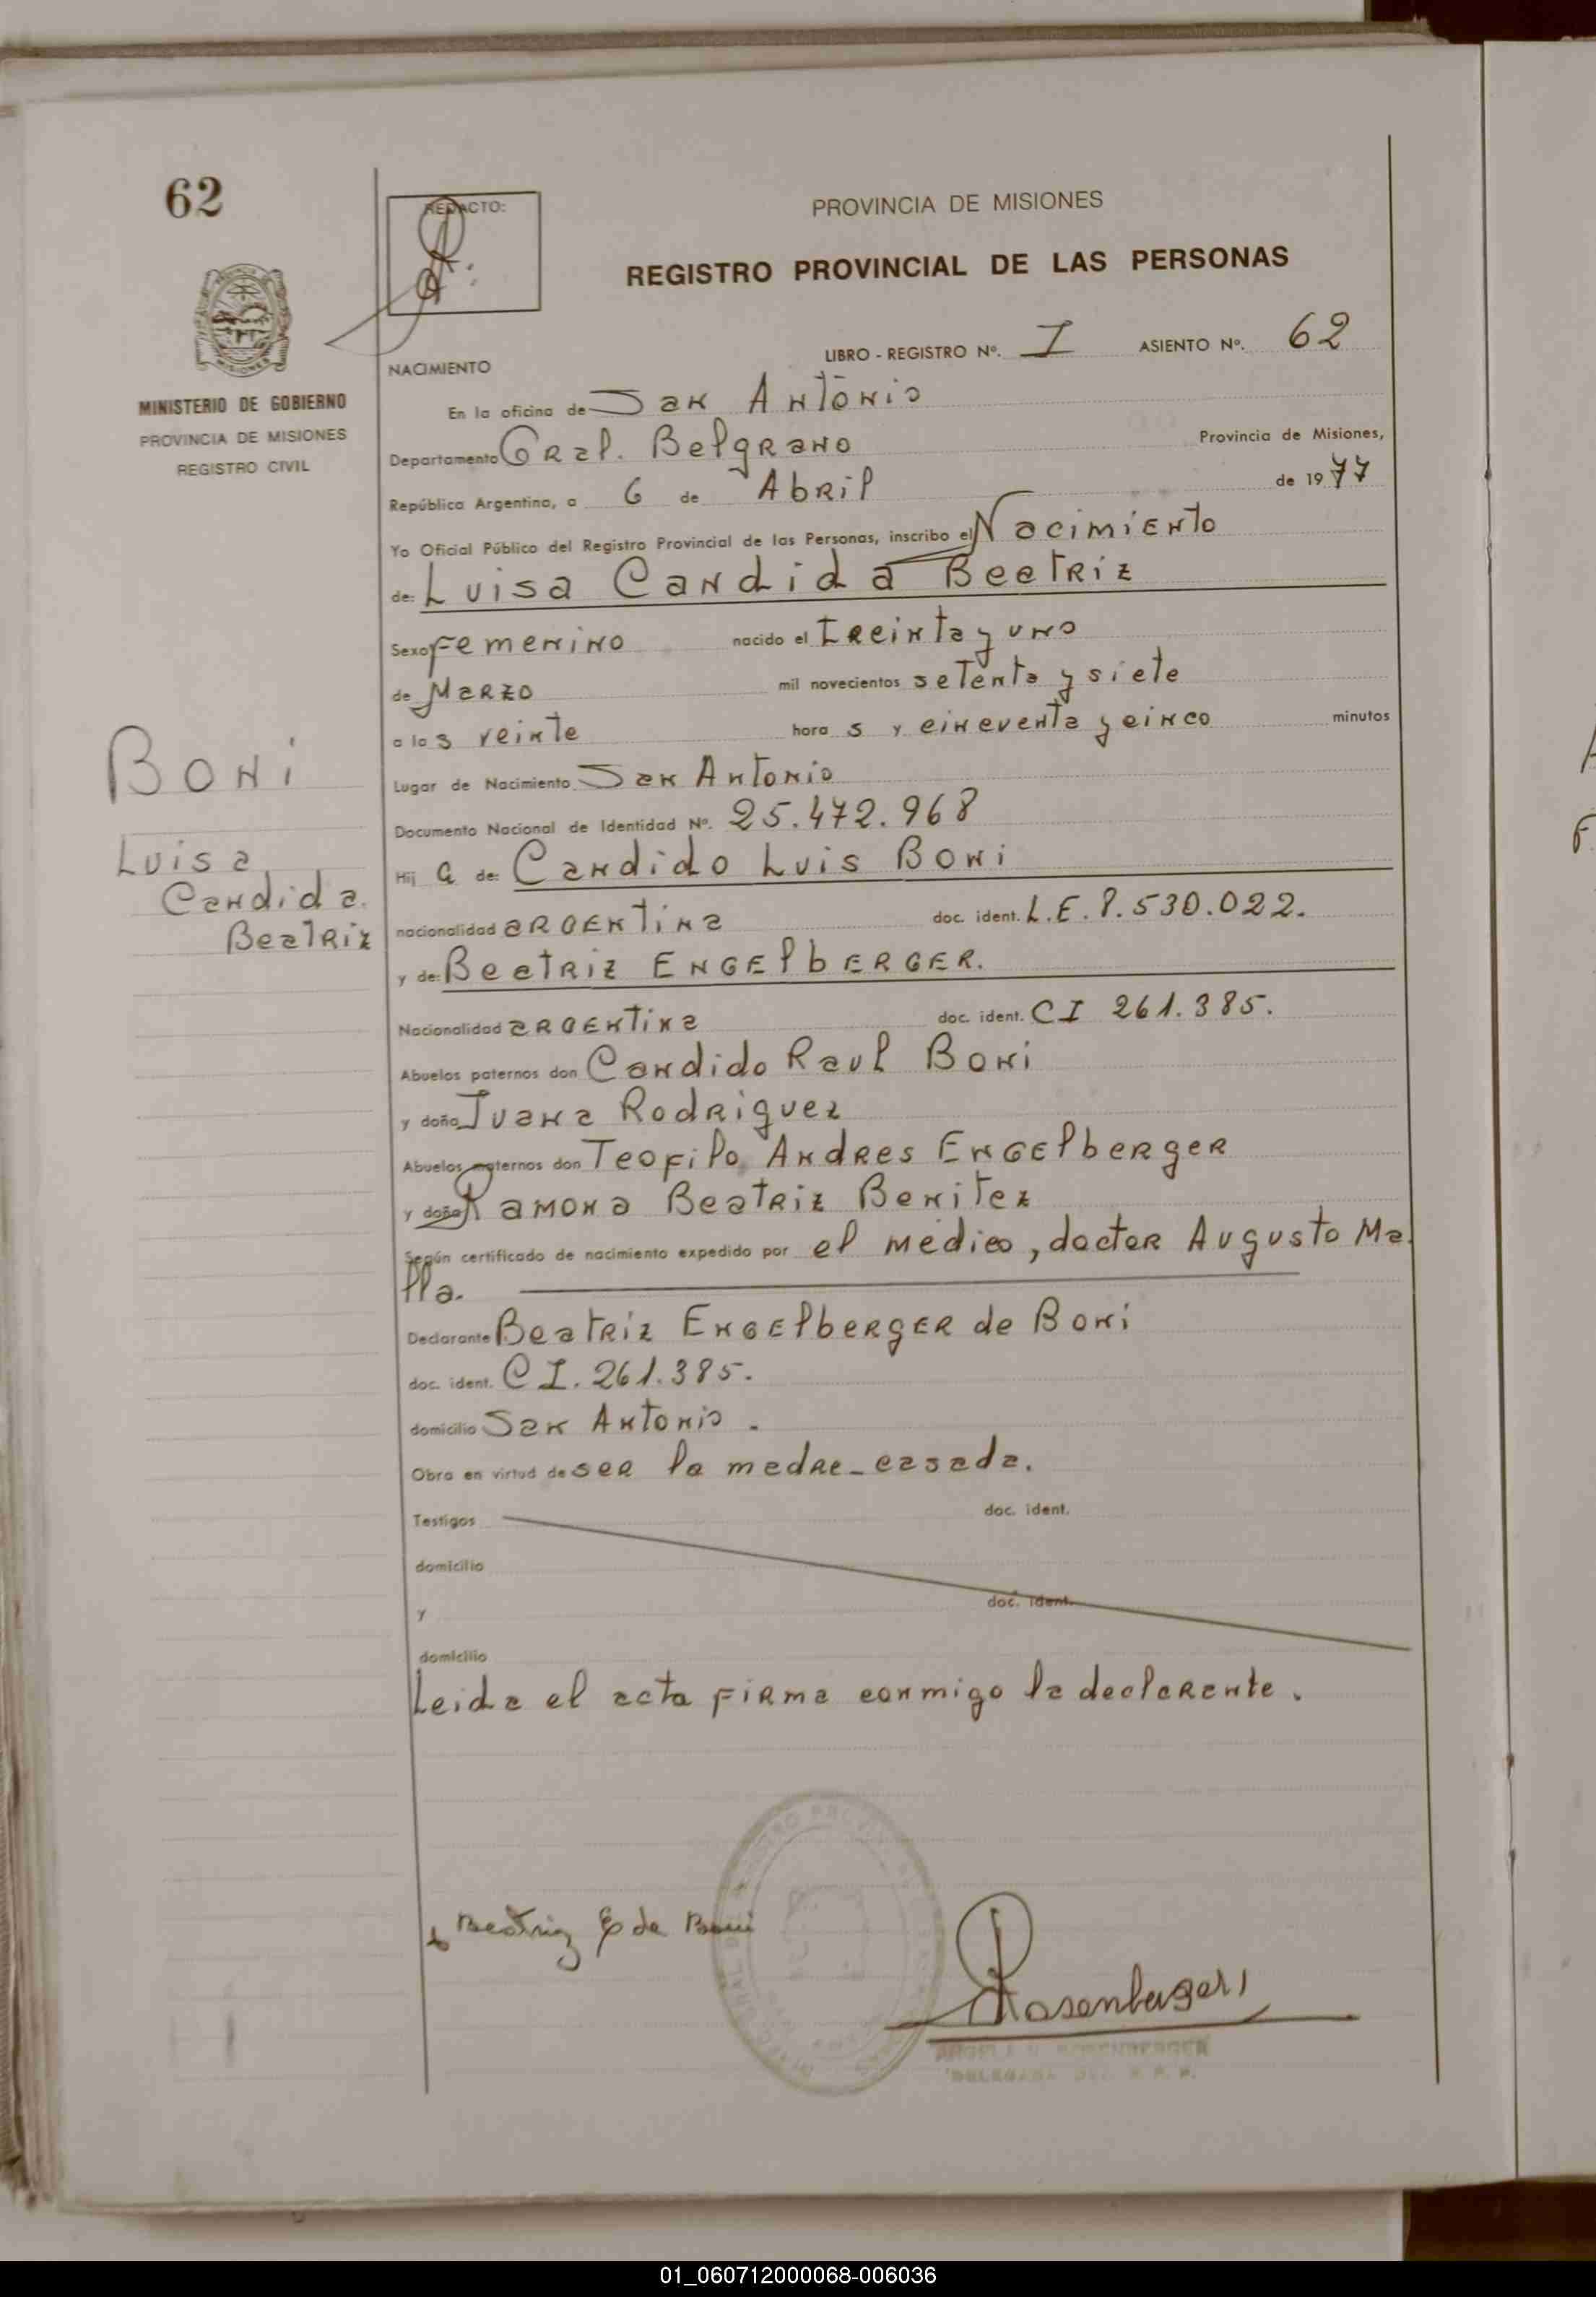 62
REDACTO:
PROVINCIA DE MISIONES
REGISTRO PROVINCIAL DE LAS PERSONAS
MINISTERIO DE GOBIERNO
PROVINCIA DE MISIONES
REGISTRO CIVIL
NACIMIENTO LIBRO - REGISTRO Nº. I ASIENTO Nº. 62
En la oficina de San Antonio
Departamento Gral. Belgrano Provincia de Misiones,
República Argentina, a 6 de Abril de 1977
Yo Oficial Público del Registro Provincial de las Personas, inscribo el Nacimiento
de: Luisa Candida Beatriz
Sexo Femenino nacido el Treinta y uno
de Marzo mil novecientos setenta y siete
a las veinte horas y cincuenta y cinco minutos
Lugar de Nacimiento San Antonio
Documento Nacional de Identidad Nº. 25.472.968
Boni
Luisa
Candida
Beatriz
Hija de: Candido Luis Boni
nacionalidad argentina doc. ident. L.E. 8.530.022.
y de: Beatriz Engelberger.
Nacionalidad argentina doc. ident. CI 261.385.
Abuelos paternos don Candido Raul Boni
y doña Juana Rodriguez
Abuelos maternos don Teofilo Andres Engelberger
y doña Ramona Beatriz Benitez
Según certificado de nacimiento expedido por el médico, doctor Augusto Ma
lla.
Declarante Beatriz Engelberger de Boni
doc. ident. CI. 261.385.
domicilio San Antonio.
Obra en virtud de ser la madre - casada.
Testigos doc. ident.
domicilio
y doc. ident.
domicilio
Leida el acta firma conmigo la declarante.
Beatriz E de Boni
Rosenberger
ROSENBERGER
01_060712000068-006036